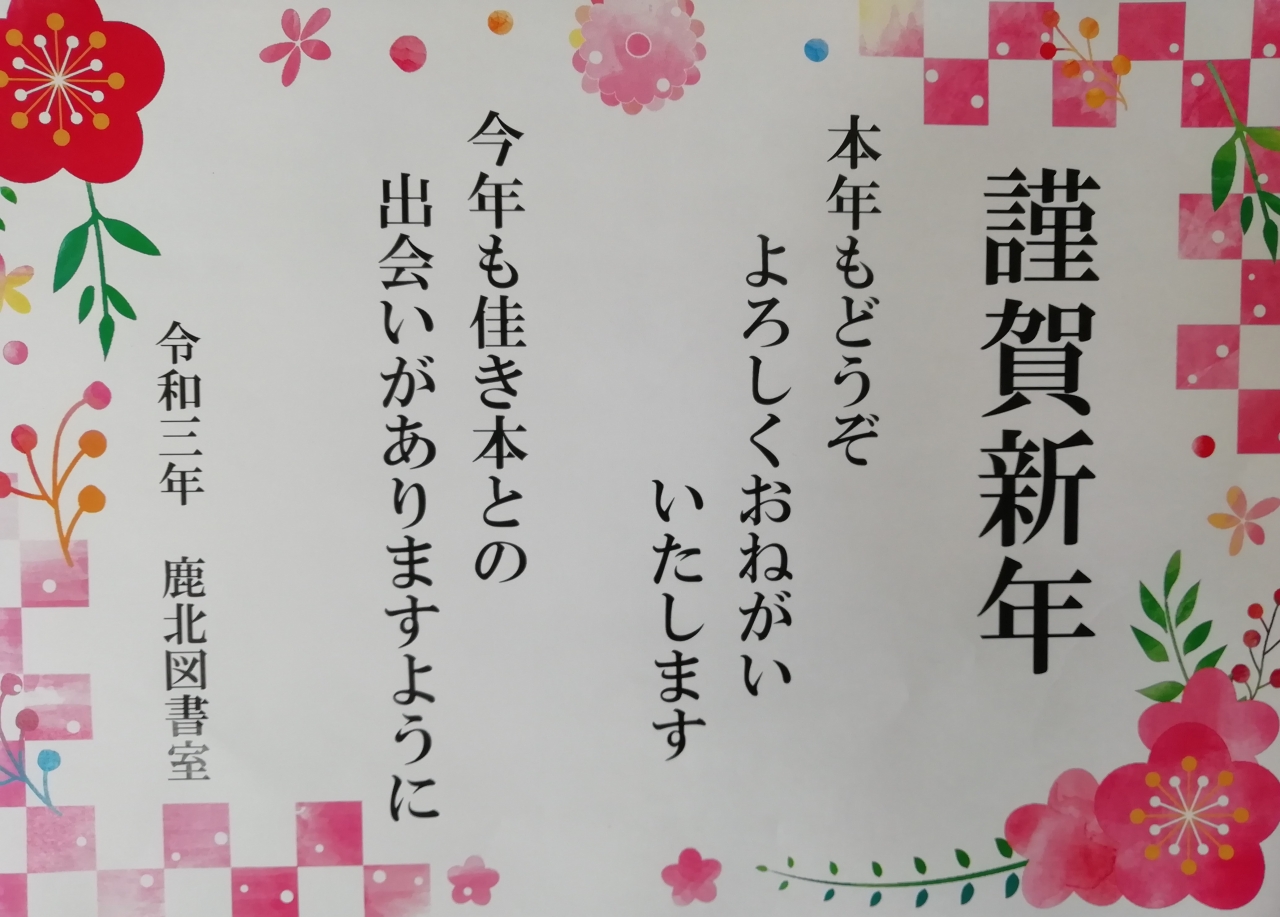 謹賀新年
本年もどうぞ
よろしくおねがい
いたします
今年も佳き本との
出会いがありますように
令和三年　鹿北図書室